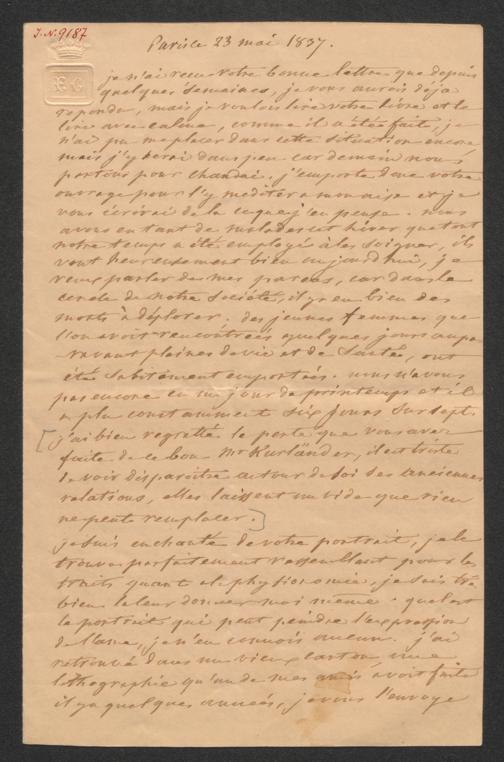 J.N. 9187
Paris le 23 mai 1837.
je n'ai recu votre bonne lettre que depuis
quelques semaines, je vous aurois déja
repondu, mais je voulois lire votre livre et le
lire avec calme, comme il a été fait, je
n'ai pu me placer dans cette situation encore
mais j'y serai dans peu car demain nous
partons pour . j'emporte donc votre
ouvrage pour l'y mediter a mon aise et je
vous écrirai de la ce que j'en pense. nous
avons eu tant de malades cet hiver que tout
notre temps a été employé à les soigner, ils
vont heureusement bien aujourd'hui, je
veux parler de mes parens, car dans le
cercle de notre société, il y a eu bien des
morts à déplorer. des jeunes femmes que
l'on avoit rencontrées quelques jours aupa
-ravant pleines de vie et de santé, ont
été subitement emportées. nous n'avons
pas encore eu un jour de printemps et il
a plu constamment six jours sur sept.
[j'ai bien regretté la perte que vous avez
faite de ce bon Mr Kurländer, il est triste
de voir disparoitre autour de soi ses anciennes
relations, elles laissent un vide que rien
ne peut remplacer.]
je suis enchanté de votre portrait, je le
trouve parfaitement ressemblant pour les
traits quant a la physionomie, je sais tré
bien la leur donner moi même. quel est
le portrait qui peut peindre l'expression
de l'ame, je n'en connois aucun. j'ai
retrouvé dans un vieux carton une
lithographie qu'un de mes amis avoit faite
il y a quelques années, je vous l'envoye